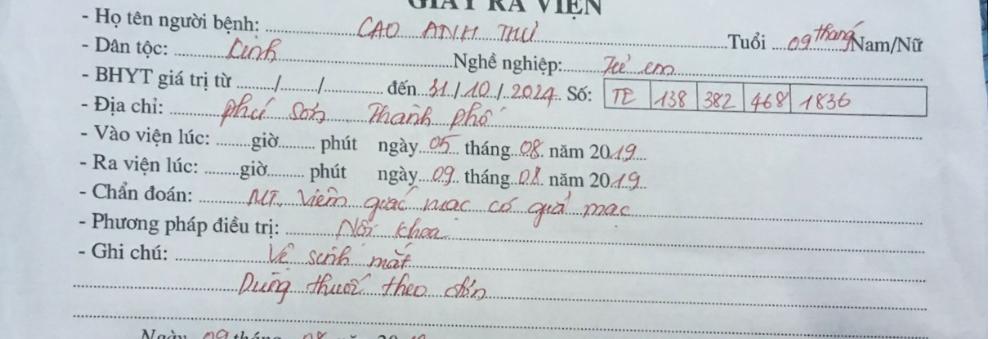 GIẤY RA VIỆN
- Họ tên người bệnh: CAO ANH THƯ Tuổi 09 tháng Nam/Nữ
- Dân tộc: Kinh Nghề nghiệp: Trẻ em
- BHYT giá trị từ ....../....../...... đến 31/10/2024 Số: TE 138 382 468 1836
- Địa chỉ: Phú Sơn Thành phố
- Vào viện lúc: ......giờ...... phút ngày 05 tháng 08 năm 2019
- Ra viện lúc: ......giờ...... phút ngày 09 tháng 08 năm 2019
- Chẩn đoán: MT. Viêm giác mạc có giả mạc
- Phương pháp điều trị: Nội khoa
- Ghi chú: Vệ sinh mắt
Dùng thuốc theo đơn
Ngày 09 tháng 08